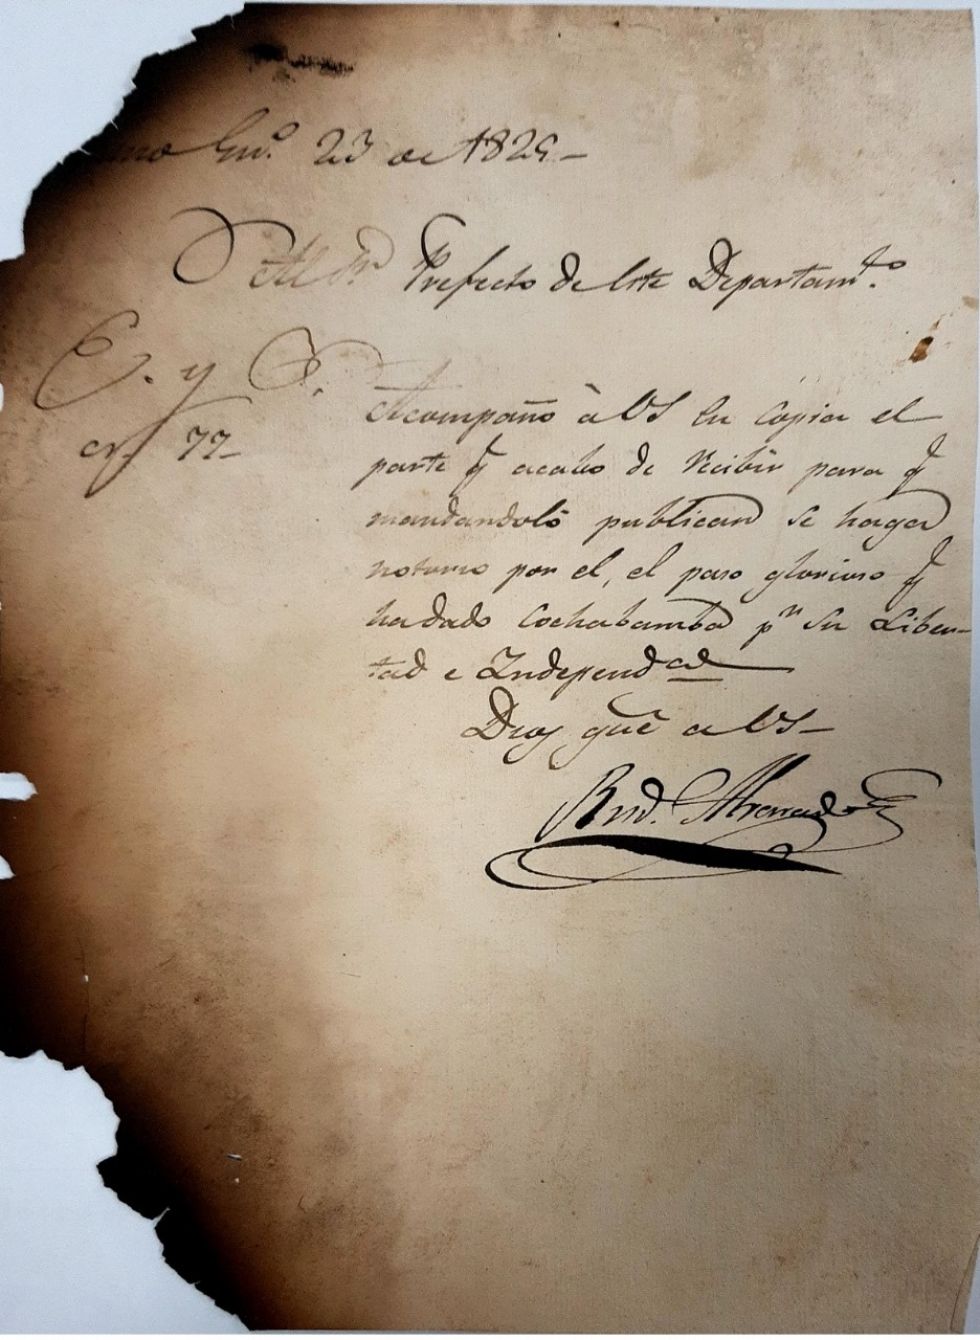 no En.º 23 de 1825_
Al Sr. Prefecto de este Departam.to
E. y S.
Acompaño à VS en copia el
nº 77_
parte q acabo de recibir para q
mandandolo publicar se haga
notorio por el, el paso glorioso q
ha dado Cochabamba p.r su Liber-
tad e Independ.cia
Dios gue a VS_
Rud.